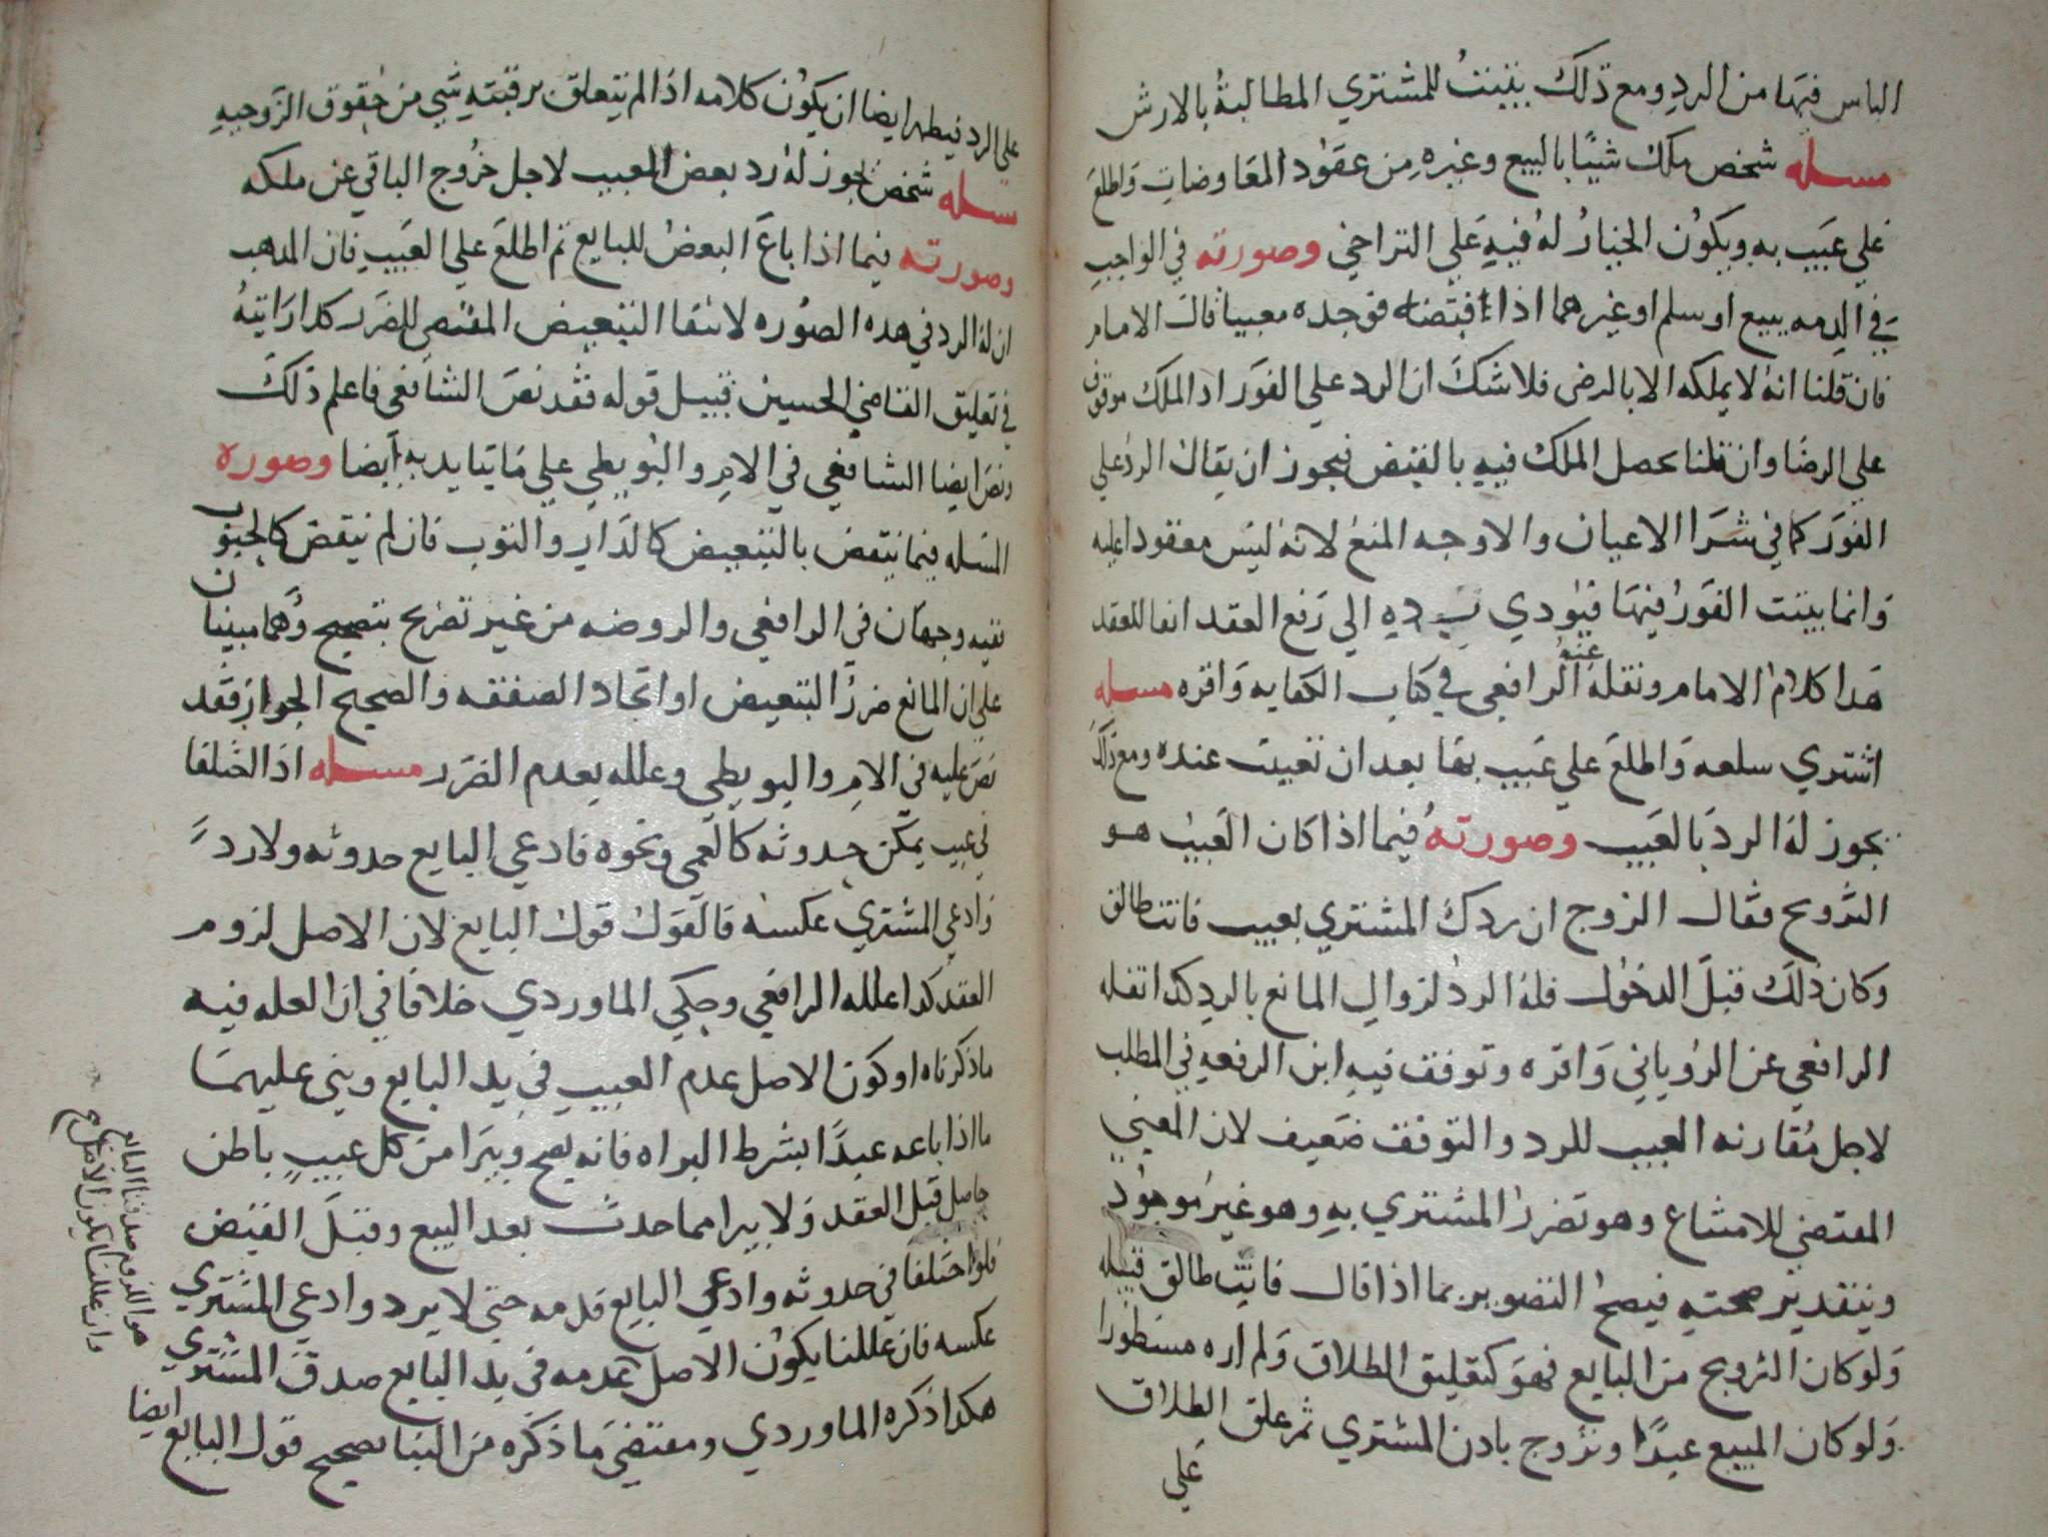 الياس فيها من الرد ومع ذلك يثبت للمشتري المطالبة بالارش
مسله شخص ملك شيئا بالبيع وغيره من عقود المعاوضات واطلع
علي عيب به ويكون الخيار له فيه علي التراخي وصورته في الواجب
في الدمه ببيع او سلم او غيرهما اذا اقبضه فوجده معيبا قال الامام
فان قلنا انه لا يملكه الا بالرضي فلا شك ان الرد علي الفور اد الملك موقوف
علي الرضا وان قلنا يحصل الملك فيه بالقبض فيجوز ان يقال الرد علي
الفور كما في شرا الاعيان والاوجه المنع لانه ليس معقودا عليه
وانما يثبت الفور فيما يودي رده الي رفع العقد ابقا للعقد
هدا كلام الامام ونقله عنه الرافعي في كتاب الكفايه واقره مسله
اشتري سلعه واطلع علي عيب بها بعد ان تعيبت عنده ومع ذلك
يجوز له الرد بالعيب وصورته فيما اذا كان العيب هو
التزويج فقال الزوج ان ردك المشتري بعيب فانت طالق
وكان ذلك قبل الدخول فله الرد لزوال المانع بالرد كدا نقله
الرافعي عن الروياني واقره وتوقف فيه ابن الرفعه في المطلب
لاجل مقارنه العيب للرد والتوقف ضعيف لان المعني
المقتضي للامتناع وهو تضرر المشتري به وهو غير موجود
وبتقدير صحته فيصح التصوير بما اذا قال فانت طالق قبيله
ولو كان التزويج من البايع فهو كتعليق الطلاق ولم اره مسطورا
ولو كان المبيع عبدا وتزوج بادن المشتري ثم علق الطلاق
علي
علي الرد فيظهر ايضا ان يكون كلامه اذا لم يتعلق برقبته شي من حقوق الزوجيه
مسله شخص يجوز له رد بعض المعيب لاجل خروج الباقي عن ملكه
وصورته فيما اذا باع البعض للبايع ثم اطلع علي العيب فان المدهب
ان له الرد في هده الصوره لانتفا التبعيض المقتضي للضرر كدا رايته
في تعليق القاضي الحسين قبيل قوله فقد نص الشافعي فاعلم ذلك
ونص ايضا الشافعي في الام والبويطي علي ما يتايد به ايضا وصوره
المسله فيما ينقص بالتبعيض كالدار والثوب فان لم ينقص كالحبوب
ففيه وجهان في الرافعي والروضه من غير تصريح بتصحيح وهما مبنيان
علي ان المانع ضرر التبعيض او اتحاد الصفقه والصحيح الجواز فقد
نص عليه في الام والبويطي وعلله بعدم الضرر مسله اذا اختلفا
في عيب يمكن حدوثه كالعمي ونحوه فادعي البايع حدوثه ولا رد
وادعي المشتري عكسه فالقول قول البايع لان الاصل لزوم
العقد كدا علله الرافعي وحكي الماوردي خلافا في ان العله فيه
ما ذكرناه او كون الاصل عدم العيب في يد البايع ويبني عليهما
ما اذا باعه عبدا بشرط البراه فانه يصح ويبرا من كل عيب باطن
حاصل قبل العقد ولا يبرا مما حدث بعد البيع وقبل القبض
فلو اختلفا في حدوثه وادعي البايع قدمه حتي لا يرد وادعي المشتري
عكسه فان عللنا بكون الاصل عدمه في يد البايع صدق المشتري
هكدا ذكره الماوردي ومقتضي ما ذكره من البنا تصحيح قول البايع ايضا
وان عللنا بكون الاصل
هو اللزوم صدقنا البايع
صح